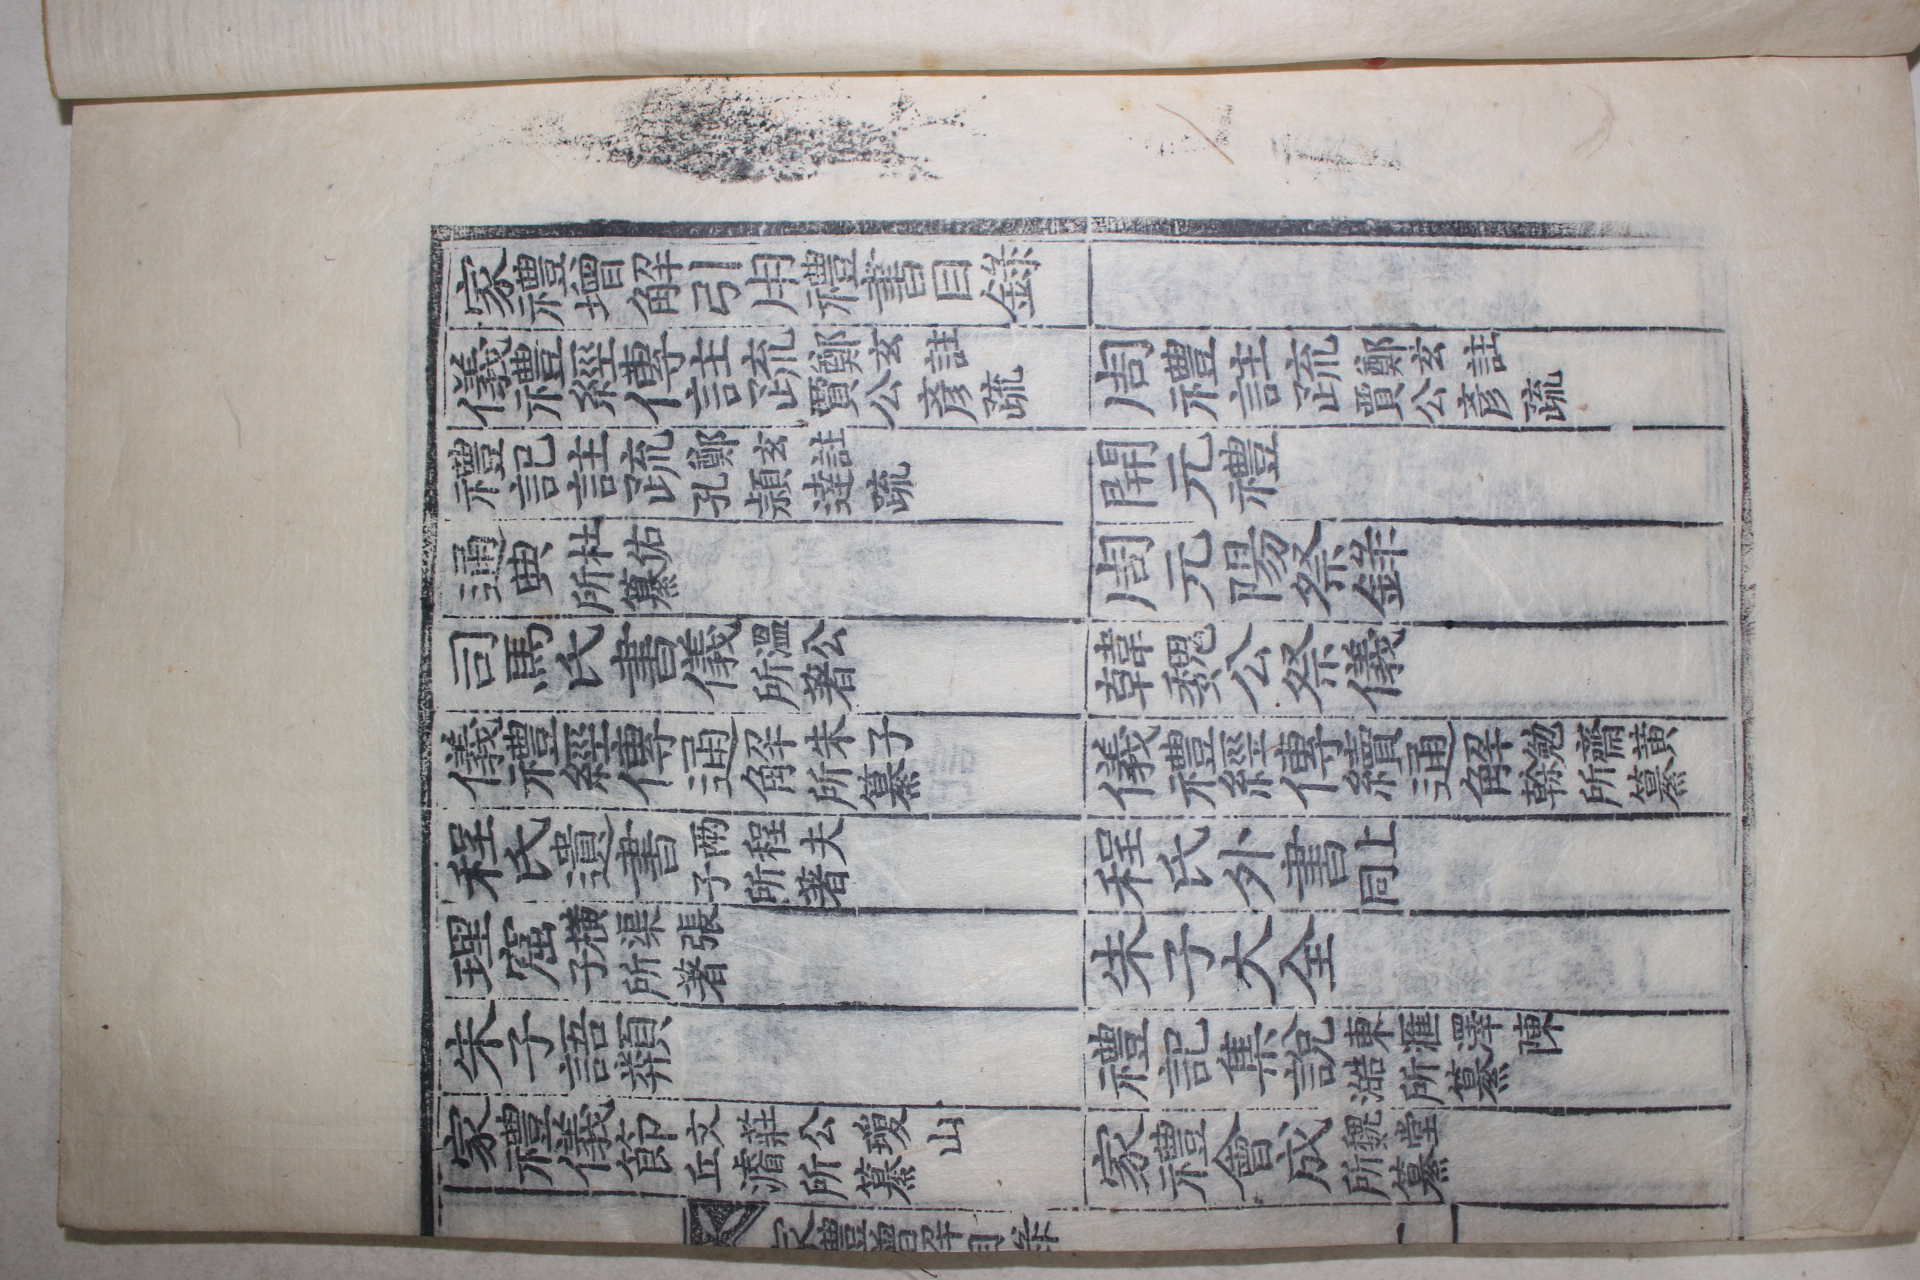 家禮增解引用禮書目錄
儀禮經傳註疏 鄭玄註賈公彥疏 周禮註疏 鄭玄註賈公彥疏
禮記註疏 鄭玄註孔頴達疏 開元禮
通典 杜佑所纂 周元陽祭錄
司馬氏書儀 溫公所著 韓魏公祭儀
儀禮經傳通解 朱子所纂 儀禮經傳續通解 勉齋黃榦所纂
程氏遺書 兩程夫子所著 程氏外書 上同
理窟 橫渠張子所著 朱子大全
朱子語類 禮記集說 東匯澤陳澔所纂
家禮儀節 文莊公瓊山丘濬所纂 家禮會成 魏堂所纂
家禮增解目錄 一